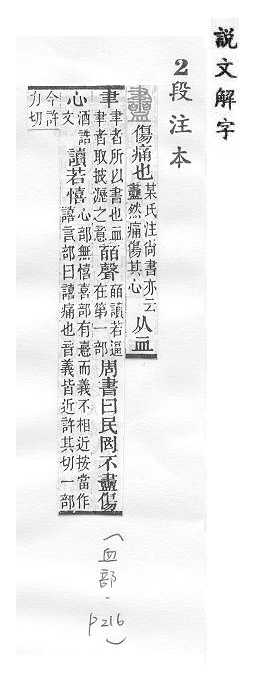 說文解字
2段注本
衋傷痛也某氏注尙書亦云衋然痛傷其心从血
聿聿者所以書也血聿者取披瀝之意皕聲皕讀若逼在第一部周書曰民罔不衋傷
心酒誥文讀若憘心部無憘喜部有憙而義不相近按當作譆言部曰譆痛也音義皆近許其切一部
今許力切
（血部．p216）